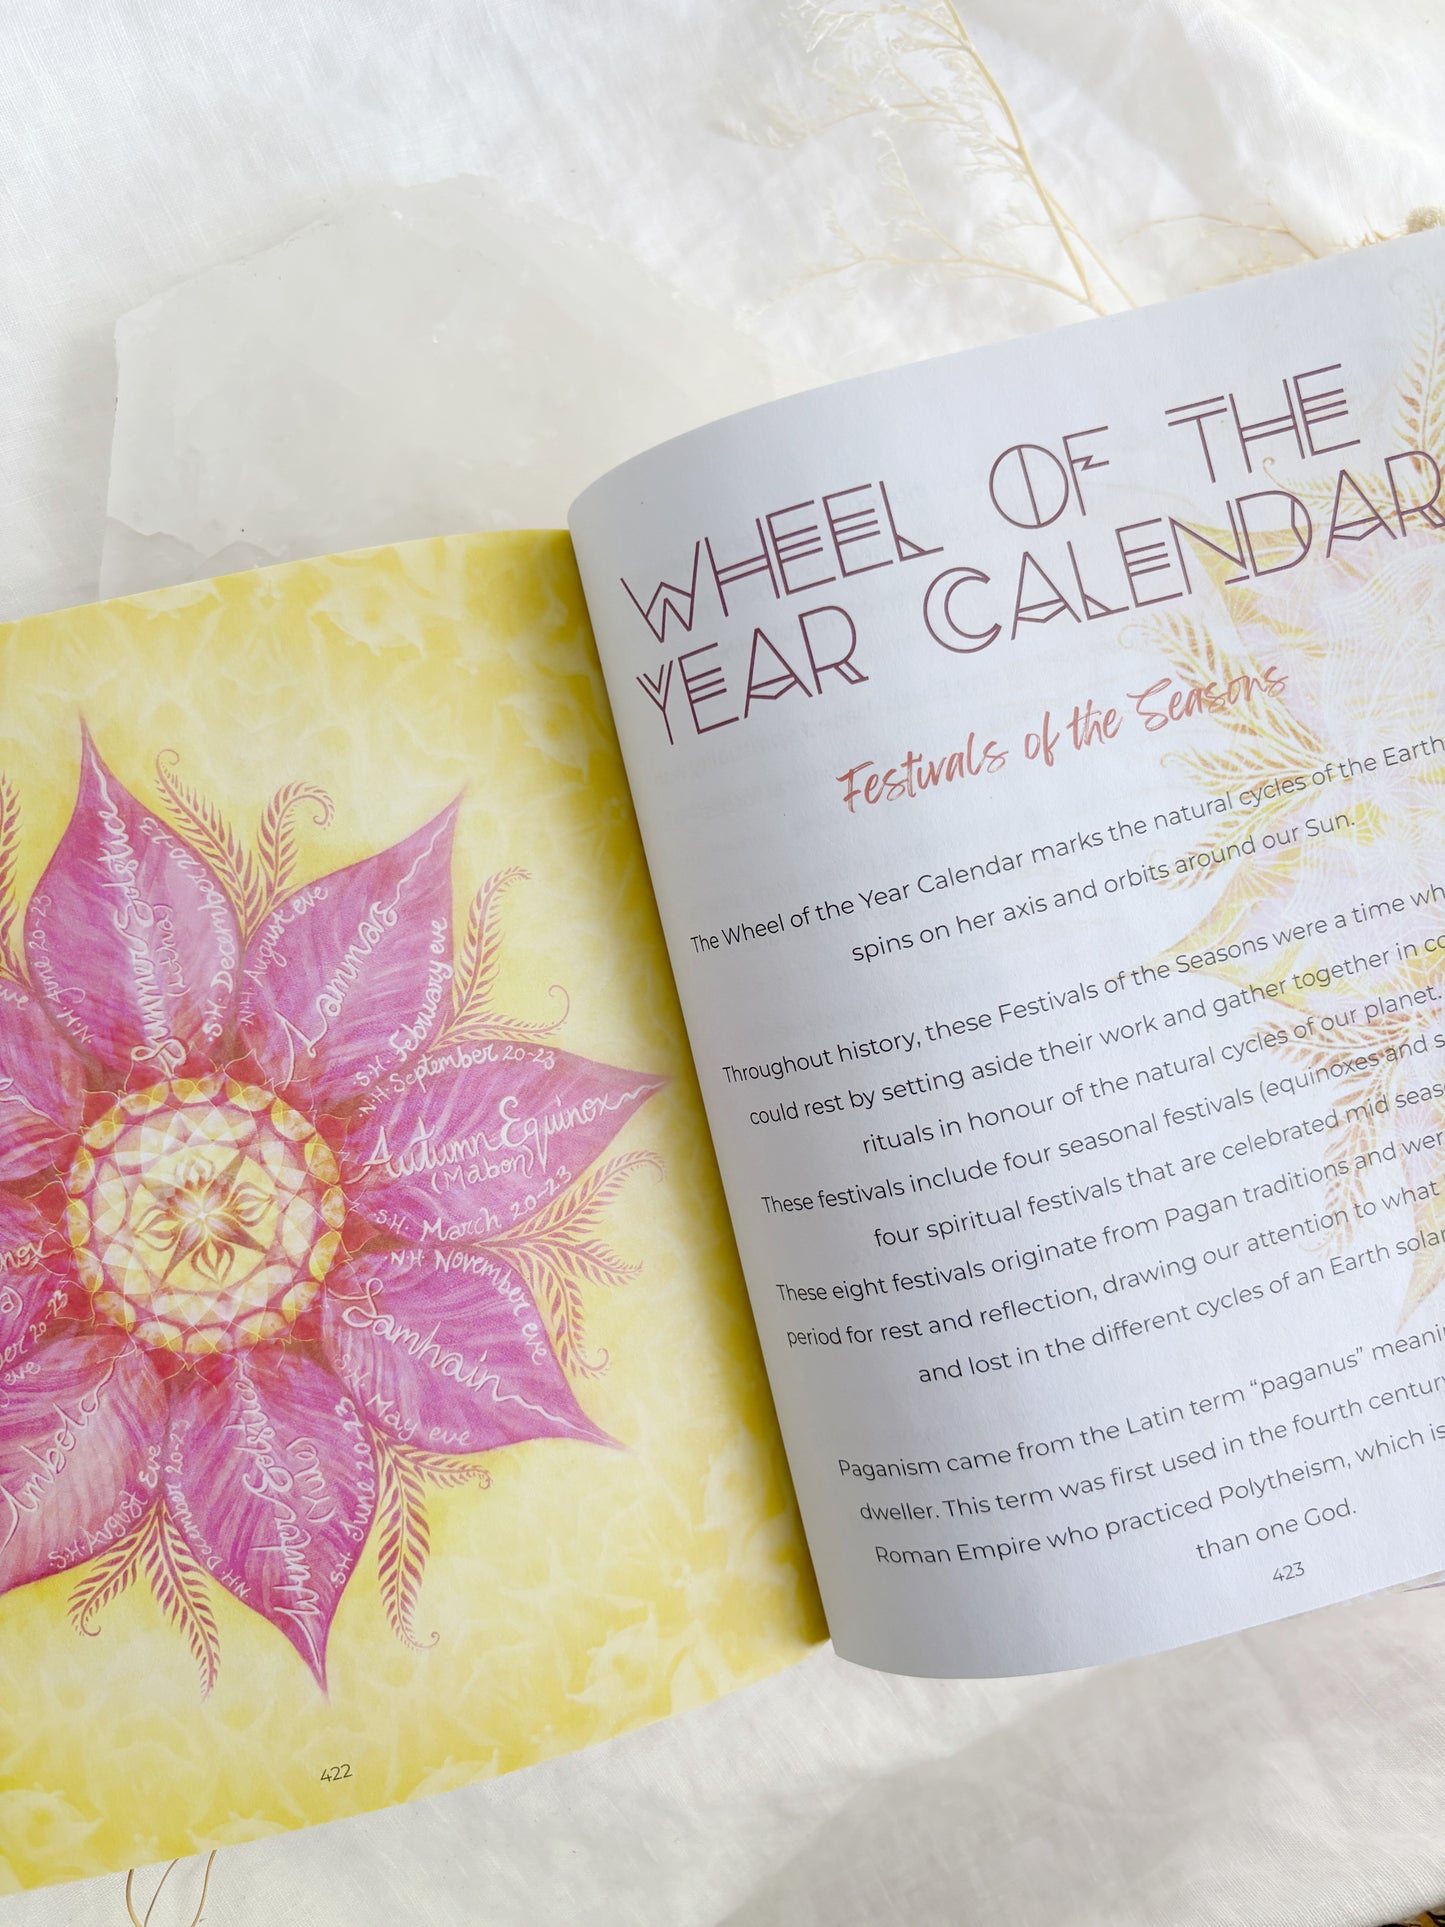 Summer Solstice
(Litha)
N.H. June 20-23
S.H. December 20-23
Lammas
N.H. August eve
S.H. February eve
Autumn Equinox
(Mabon)
N.H. September 20-23
S.H. March 20-23
Samhain
N.H. November eve
S.H. May eve
Winter Solstice
(Yule)
S.H. June 20-23
N.H. December 20-2
Imbolc
S.H. August Eve
eve
eve
20-23
422
WHEEL OF THE
YEAR CALENDAR
Festivals of the Seasons
The Wheel of the Year Calendar marks the natural cycles of the Earth
spins on her axis and orbits around our Sun.
Throughout history, these Festivals of the Seasons were a time
could rest by setting aside their work and gather together in
rituals in honour of the natural cycles of our planet.
These festivals include four seasonal festivals (equinoxes and
four spiritual festivals that are celebrated mid
These eight festivals originate from Pagan traditions and
period for rest and reflection, drawing our attention to what
and lost in the different cycles of an Earth
Paganism came from the Latin term “paganus”
dweller. This term was first used in the fourth century
Roman Empire who practiced Polytheism, which is
than one God.
423